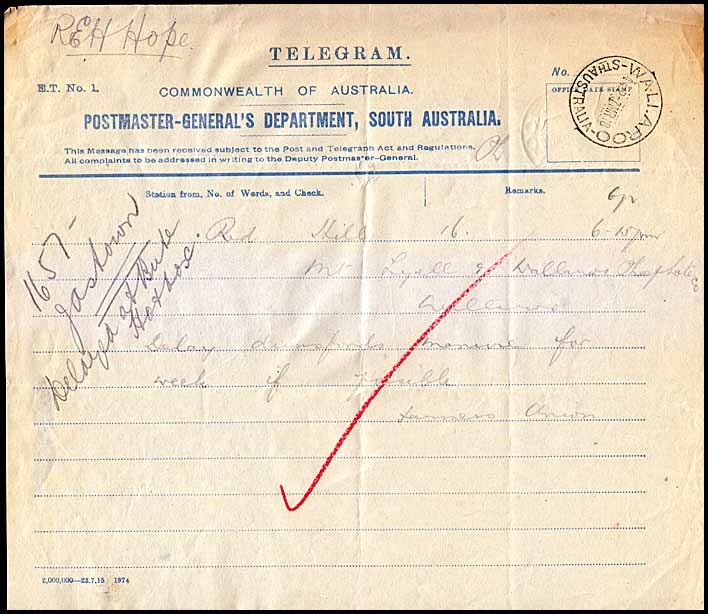 R E H Hope
TELEGRAM.
E.T. No. 1.
COMMONWEALTH OF AUSTRALIA.
POSTMASTER-GENERAL'S DEPARTMENT, SOUTH AUSTRALIA.
This Message has been received subject to the Post and Telegraph Act and Regulations.
All complaints to be addressed in writing to the Deputy Postmaster-General.
No.
OFFICE DATE STAMP
WALLAROO
STH AUSTRALIA
Station from, No. of Words, and Check.
Remarks.
Red Hill 16. 6.15 pm
Mt Lyell Wallaroo Phosphate Co
Wallaroo
Delay manure for
week if possible
Farmers Union
1657
Delayed at Bute
Hotbox
2,000,000—23.7.15 1974